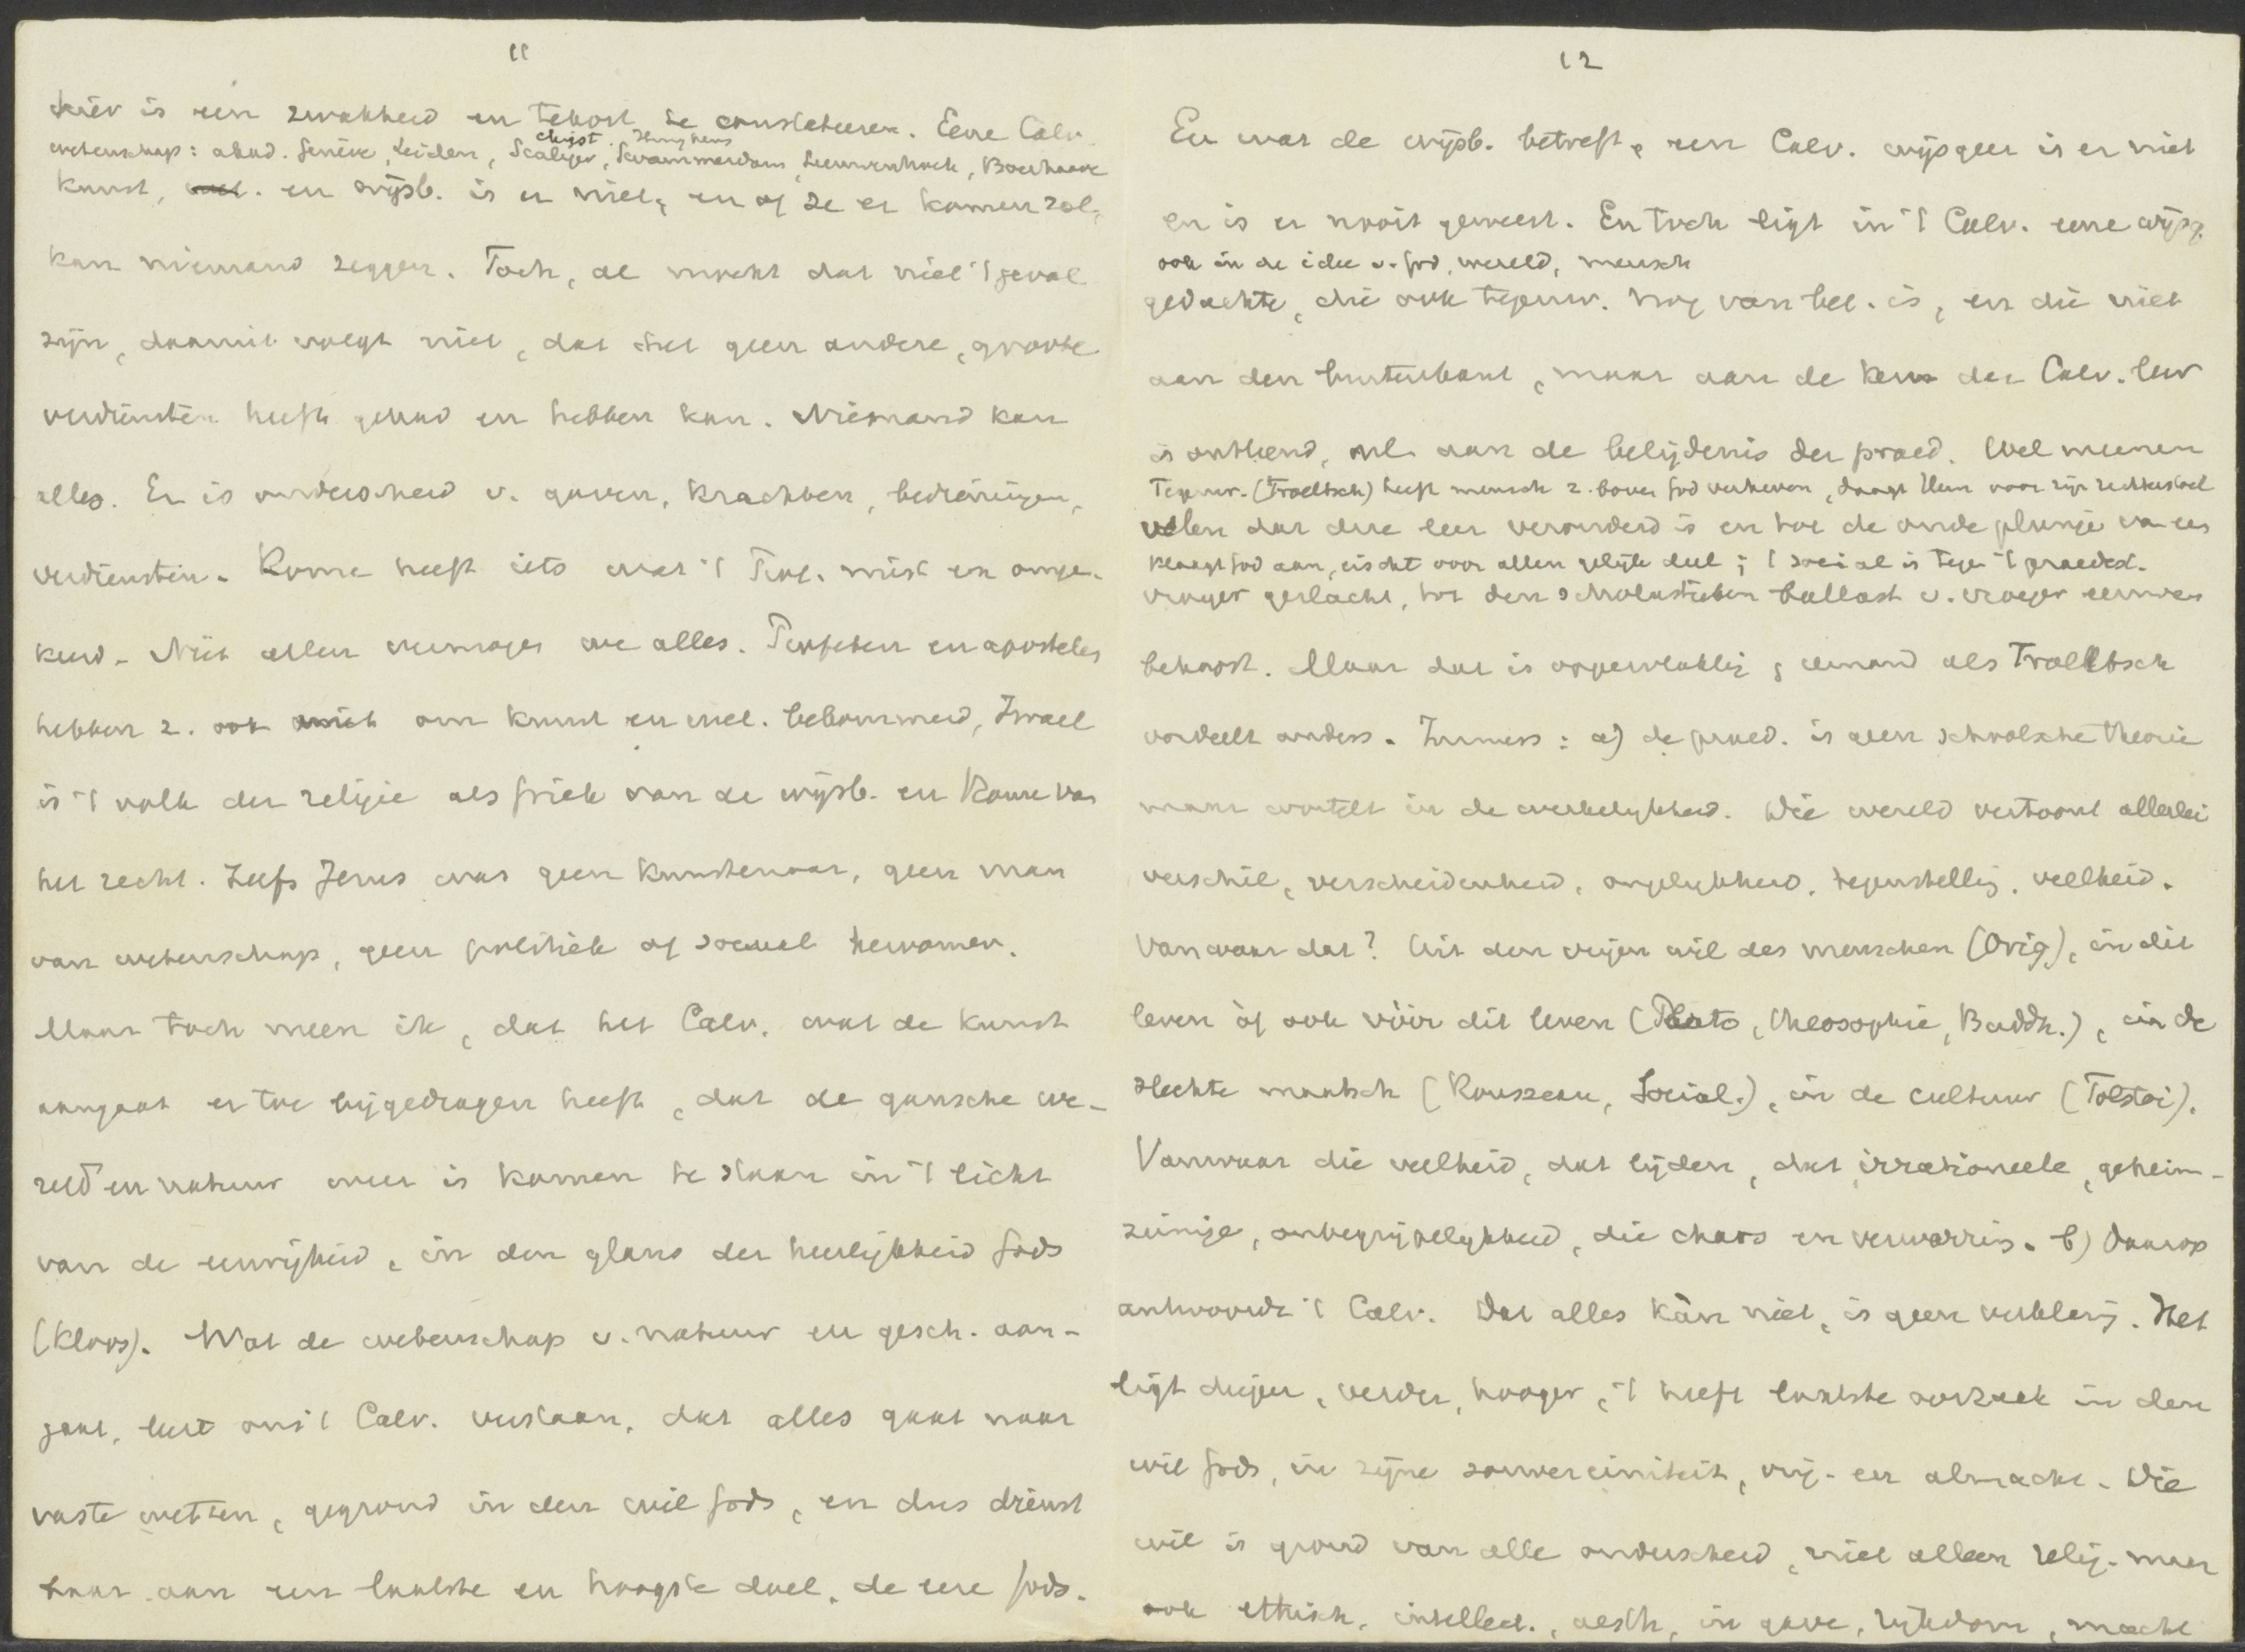 11
hier is een zwakheid en tekort te constateeren. Eene Calv.
Chijst. Huyghens
wetenschap: akad. Genève, Leiden, Scaliger, Swammerdam, Leeuwenhoek, Boerhaave
kunst, wet. en wijsb. is er niet, en of ze er komen zal,
kan niemand zeggen. Toch, al mocht dat niet 't geval
zijn, daaruit volgt niet, dat het geen andere, groote
verdiensten heeft gehad en hebben kan. Niemand kan
alles. Er is onderscheid v. gaven, krachten, bedieningen,
verdiensten. Rome heeft iets wat 't Prot. mist en omge-
keerd. Niet allen vermogen we alles. Profeten en apostelen
hebben z. ook niet om kunst en wet. bekommerd, Israel
is 't volk der religie als Griek van de wijsb. en Rome van
het recht. Zelfs Jezus was geen kunstenaar, geen man
van wetenschap, geen politiek of sociaal hervormer.
Maar toch meen ik, dat het Calv. wat de kunst
aangaat er toe bijgedragen heeft, dat de gansche we-
reld en natuur weer is komen te staan in 't licht
van de eeuwigheid, in den glans der heerlijkheid Gods
(Kloos). Wat de wetenschap v. natuur en gesch. aan-
gaat, leert ons 't Calv. verstaan, dat alles gaat naar
vaste wetten, gegrond in den wil Gods, en dus dienst
baar aan een laatste en hoogste doel, de eere Gods.
12
En wat de wijsb. betreft, een Calv. wijsgeer is er niet
en is er nooit geweest. En toch ligt in 't Calv. eene wijsg.
ook in de idee v. God, wereld, mensch
gedachte, die ook tegenw. nog van bet. is, en die niet
aan den buitenkant, maar aan de kern der Calv. leer
is ontleend, nl. aan de belijdenis der praed. Wel meenen
Tegenw. (Troeltsch) heeft mensch z. boven God verheven, daagt Hem voor zijn rechterstoel
velen dat deze leer verouderd is en tot de oude plunje van een
klaagt God aan, eischt voor allen gelijk deel; 't social is tegen 't praedest.
vroeger geslacht, tot den scholastieken ballast v. vroeger eeuwen
behoort. Maar dat is oppervlakkig; iemand als Troeltsch
oordeelt anders. Immers: a) de praed. is geen schoolsche theorie
maar wortelt in de werkelijkheid. Die wereld vertoont allerlei
verschil, verscheidenheid, ongelijkheid, tegenstelling, veelheid.
Van waar dat? Uit den vrijen wil des menschen (Orig), in dit
leven òf ook vóór dit leven (Plato, Theosophie, Buddh.), in de
slechte maatsch (Rousseau, Social.), in de cultuur (Tolstoi).
Vanwaar die veelheid, dat lijden, dat irrationeele, geheim-
zinnige, onbegrijpelijkheid, die chaos en verwarring. b) Daarop
antwoordt 't Calv. Dat alles kàn niet, is geen verklaring. Het
ligt dieper, verder, hooger, 't heeft laatste oorzaak in den
wil Gods, in zijne souvereiniteit, vrij- en almacht. Die
wil is grond van alle onderscheid, niet alleen relig. maar
ook ethisch, intellect., aesth, in gave, rijkdom, macht